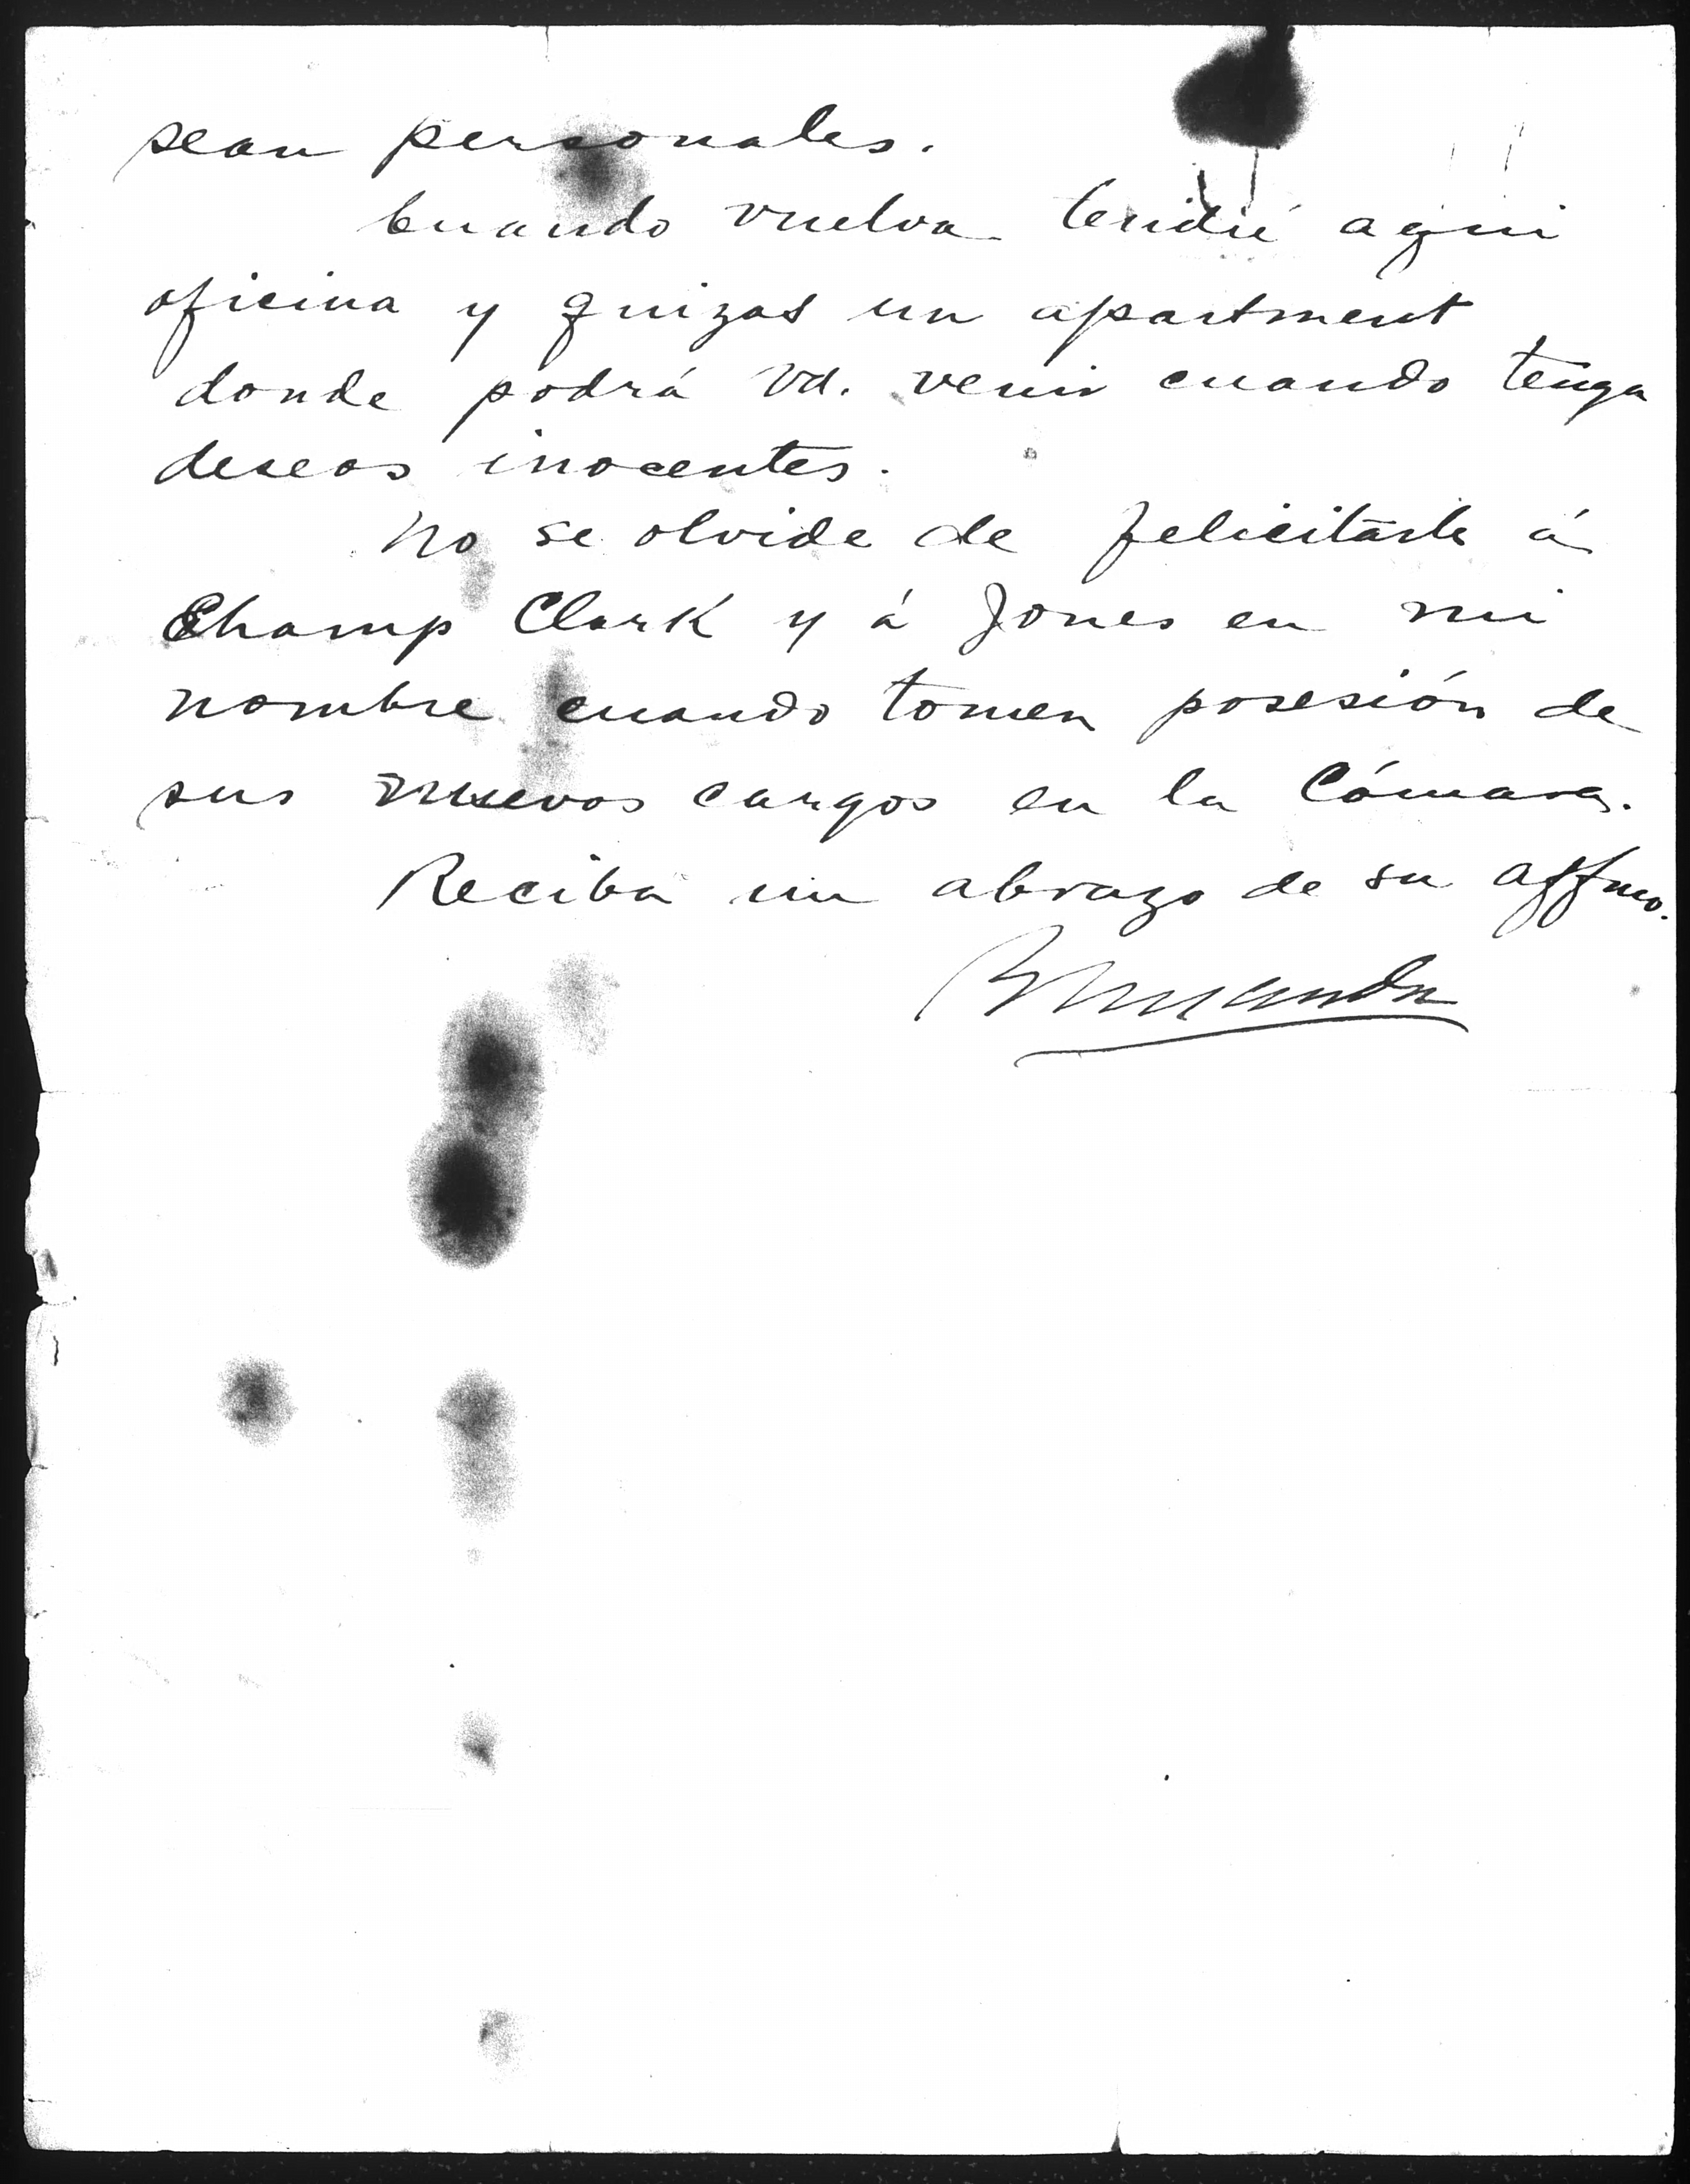 sean personales.
Cuando vuelva tendré aqui
oficina y quizas un apartment
donde podrá Vd. venir cuando tenga
deseos inocentes.
No se olvide de felicitarle á
Champ Clark y á Jones en mi
nombre cuando tomen posesión de
sus nuevos cargos en la Cámara.
Reciba un abrazo de su affmo.